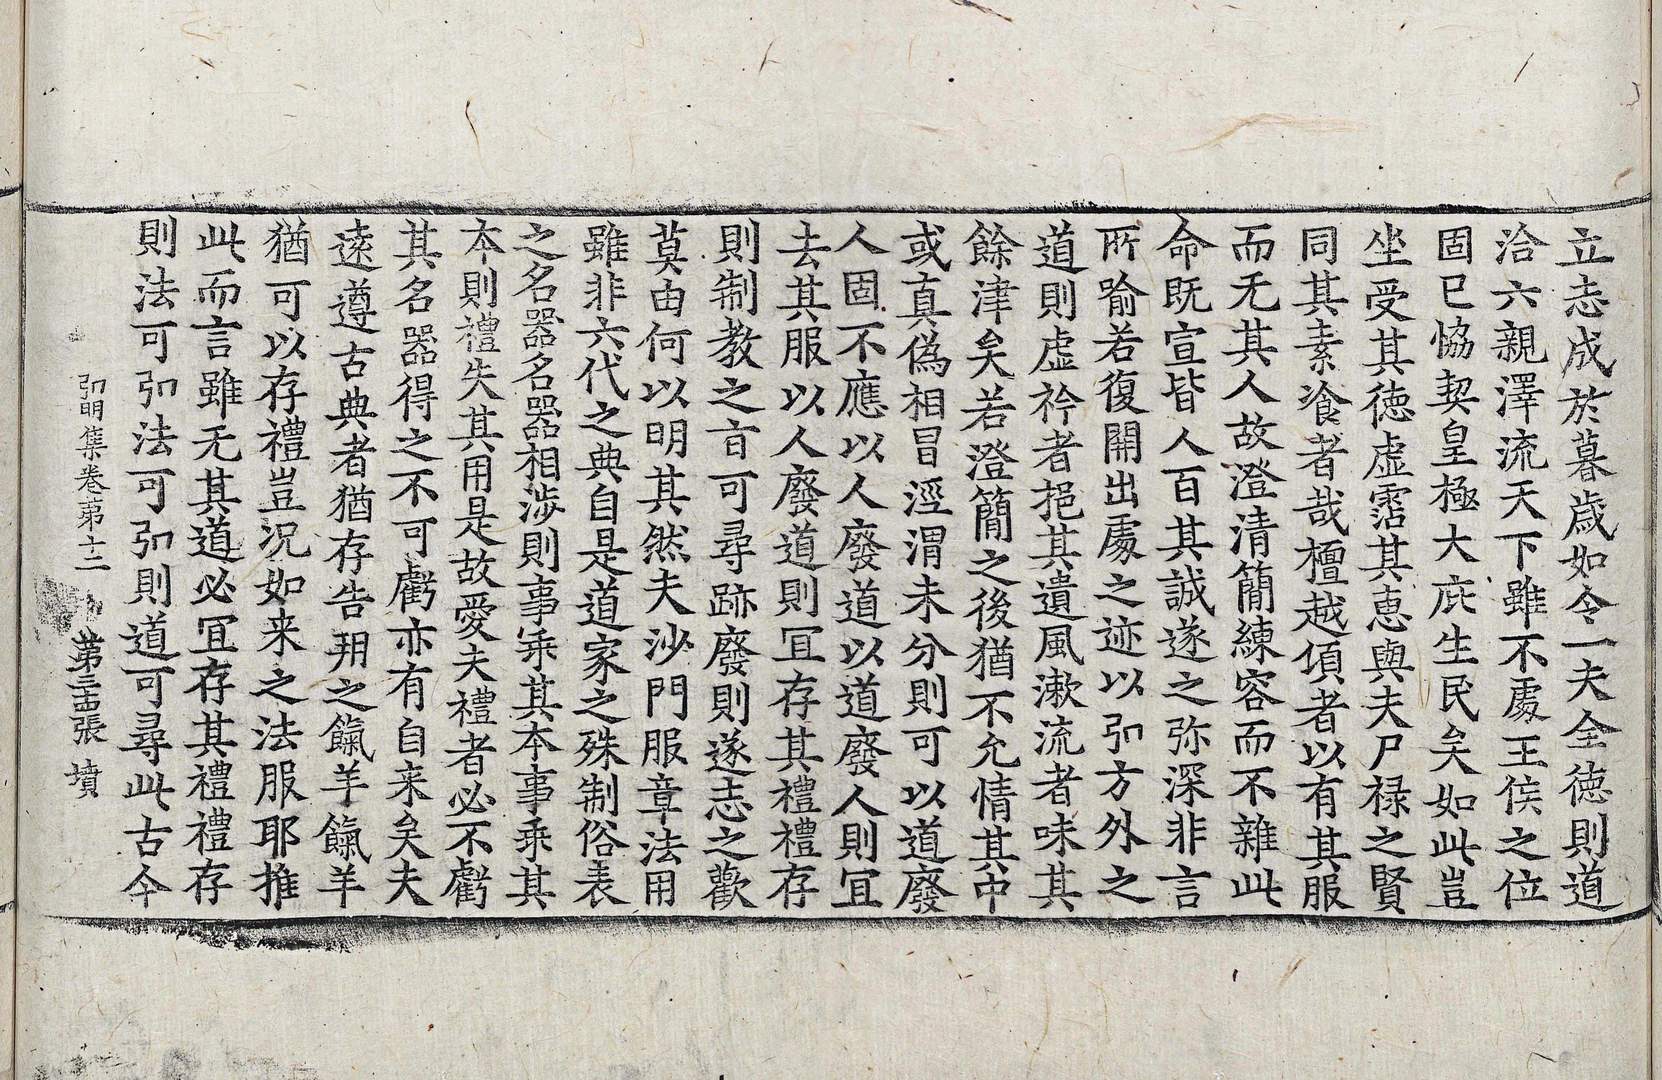 立志成於暮歲如令一夫全德則道
洽六親澤流天下雖不處王侯之位
固已恊契皇極大庇生民矣如此豈
坐受其德虛霑其恵與夫尸祿之賢
同其素飡者㢤檀越傾者以有其服
而无其人故澄清簡練容而不雜此
命旣宣皆人百其誠遂之弥深非言
所喻若復開出處之迹以弘方外之
道則虛衿者挹其遺風漱流者味其
餘津矣若澄簡之後猶不允情其中
或真僞相冒涇渭未分則可以道廢
人固不應以人廢道以道廢人則冝
去其服以人廢道則冝存其禮禮存
則制教之㫖可尋跡廢則遂志之歡
莫由何以明其然夫沙門服章法用
雖非六代之典自是道家之殊制俗表
之名器名器相涉則事乖其本事乖其
本則禮失其用是故愛夫禮者必不虧
其名器得之不可虧亦有自来矣夫
遠遵古典者猶存告朔之餼羊餼羊
猶可以存禮豈況如来之法服耶推
此而言雖无其道必冝存其禮禮存
則法可弘法可弘則道可尋此古今
弘明集卷苐十二　第三十五張　墳